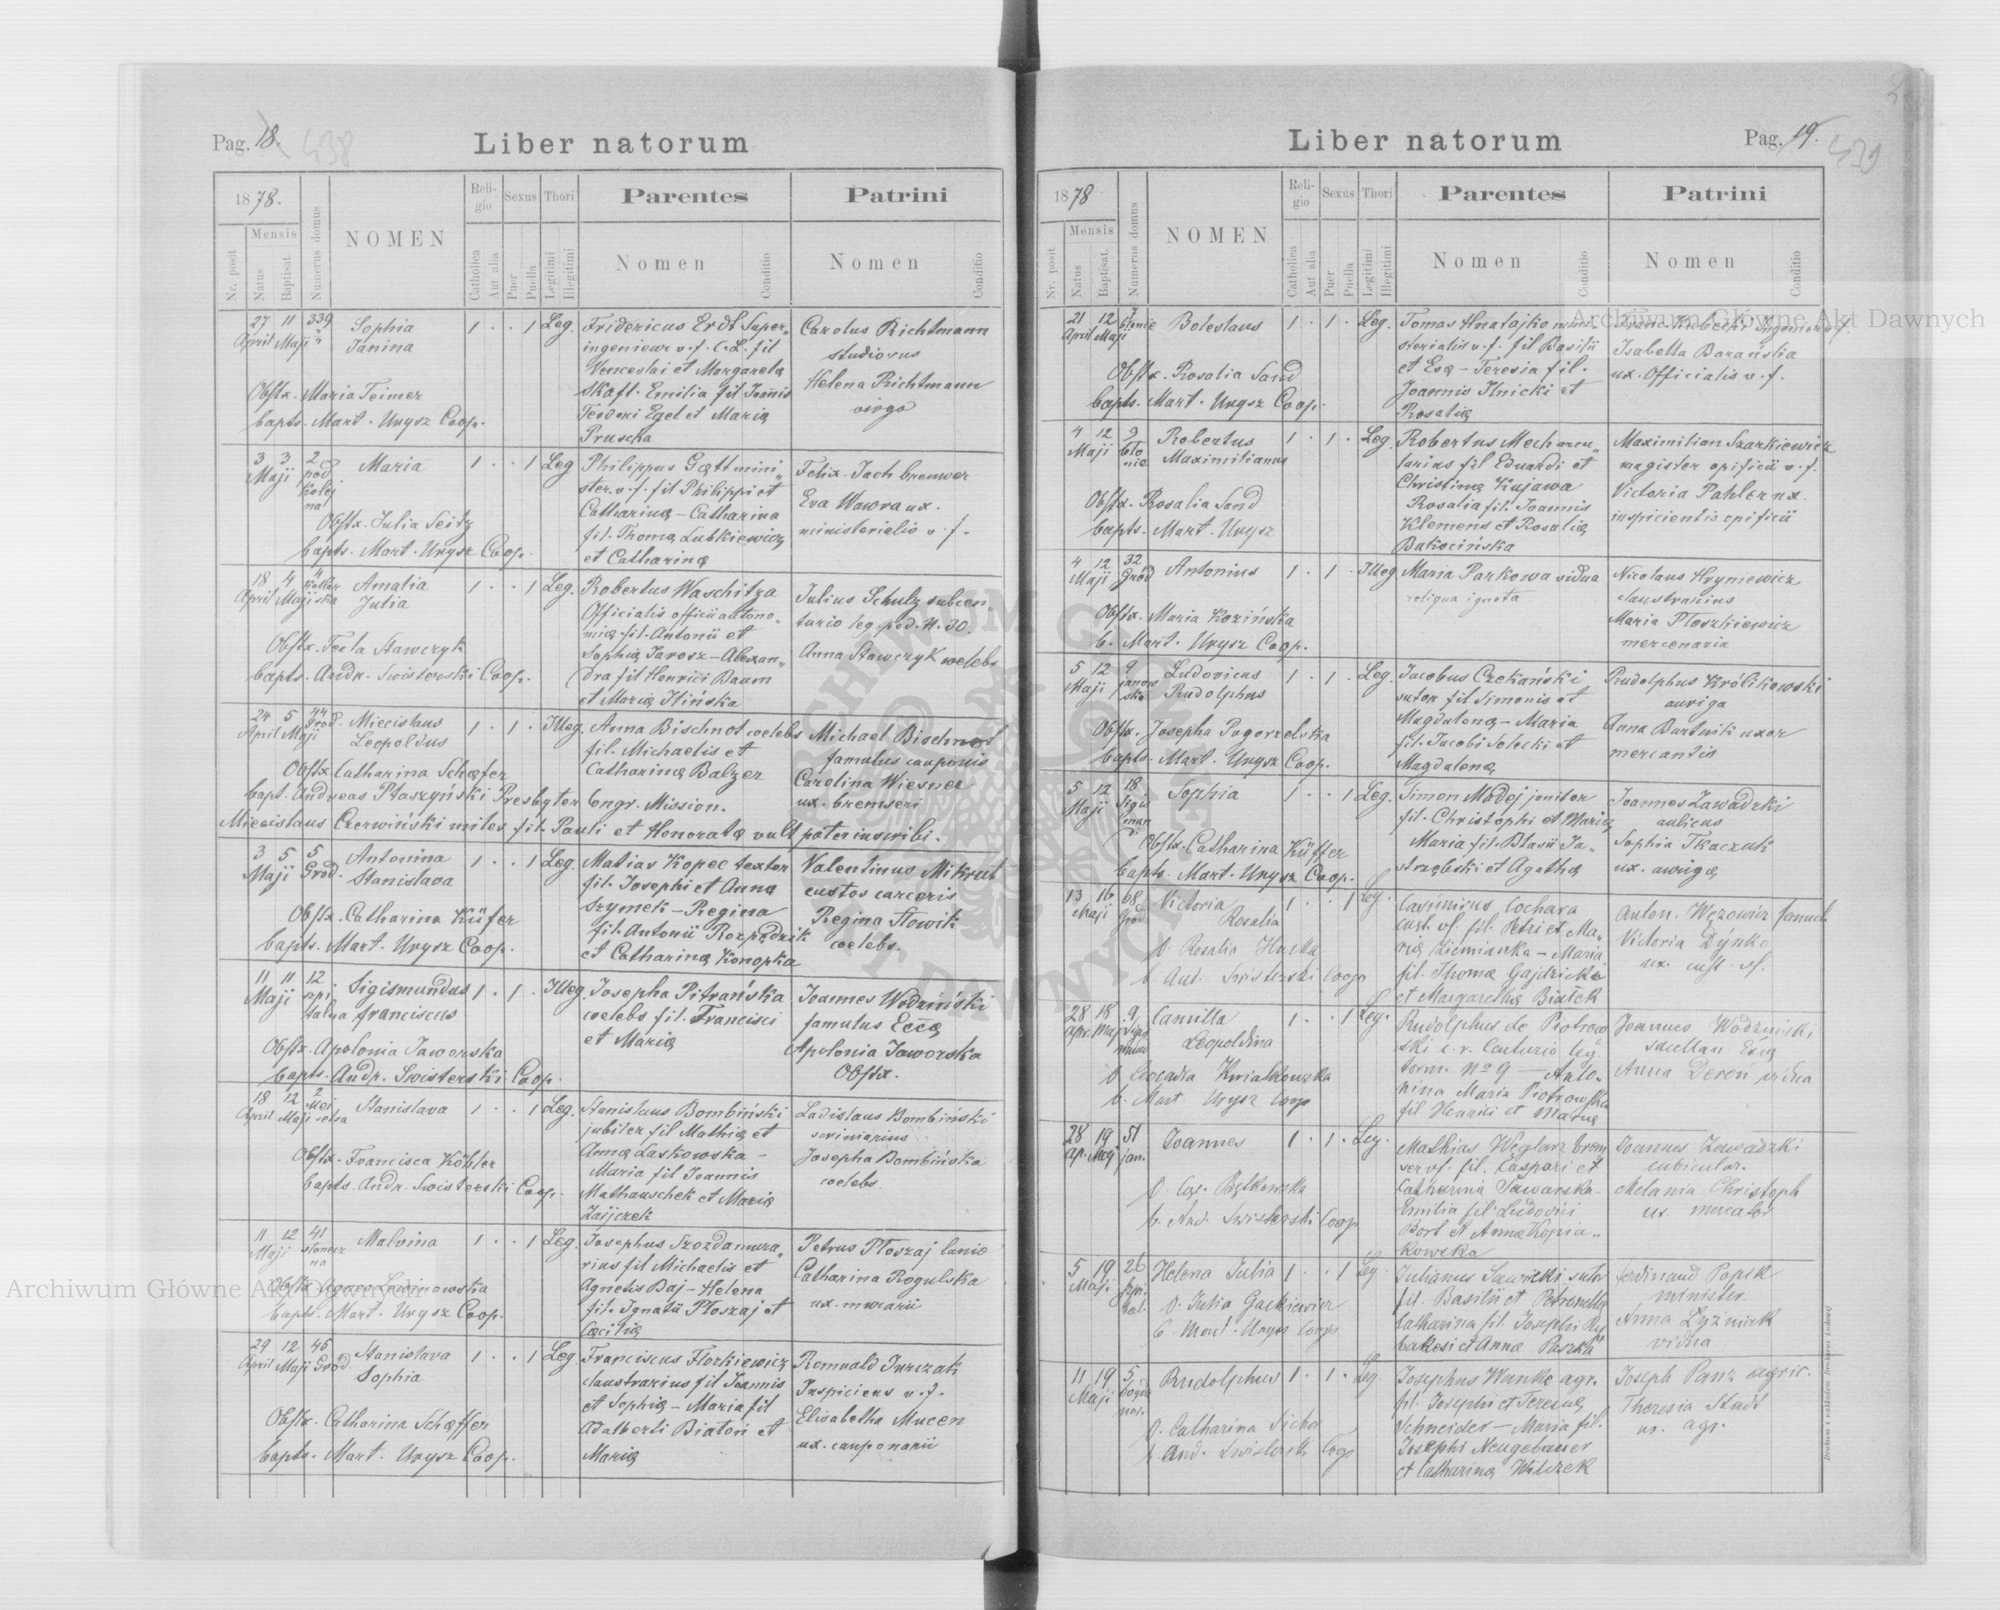 Pag. 18. 438
Liber natorum
1878.
Mensis
Nr. posit
Natus
Baptisat.
Numerus domus
NOMEN
Religio
Catholica
Aut alia
Sexus
Puer
Puella
Thori
Legitimi
Illegitimi
Parentes
Nomen
Conditio
Patrini
Nomen
Conditio
27 11 339 Sophia 1 · · 1 Leg. Fridericus Erdt Super„ Carolus Richtmann
April Maji " Janina ingenieur v.f. C.L. fil studiosus
Venceslai et Margareta Helena Richtmann
Obstx. Maria Teimer Skaft. Emilia fil Joannis virgo
bapts. Mart. Urysz Coop. Teodori Egel et Maria
Pruscha
3 3 2 Maria 1 · · 1 Leg Philippus Gattmini„ Felix Jach bremser
Maji pod ster. v.f. fil Philippi et Eva Wawora ux.
Kolej Catharina – Catharina ministerialis v.f.
na
Obstx. Julia Seitz fil. Thoma Lubkiewicz
bapts. Mart. Urysz Coop. et Catharina
18 4 4 Amalia 1 · · 1 Leg. Robertus Waschitza Julius Schulz subcen
April Maji Julia Officialis officii autono– turio leg. ped. N. 30.
mia fil. Antonii et Anna Stawczyk coelebs
Obstx. Tecla Stawczyk Sophia Jarosz – Alexan„
bapts. Andr. Swisterski Coop. dra fil Henrici Baum
et Maria Ilińska
24 5 44 Miecislaus 1 · 1 · Illeg. Anna Bischnot coelebs Michael Bischnot
April Maji Grod. Leopoldus fil. Michaelis et famulus cauponis
Obstx Catharina Schaefer Catharina Balzer Carolina Wiesner
bapt. Andreas Ptaszyński Presbyter Congr. Mission. ux. bremseri
Miecislaus Czerwiński miles fil. Pauli et Honorata vult pater inscribi.
3 5 5 Antonina 1 · · 1 Leg. Matias Kopec textor Valentinus Mikrut
Maji Grod. Stanislava fil. Josephi et Anna custos carceris
Obstx. Catharina Küfer Szymek – Regina Regina Słowik
bapts. Mart. Urysz Coop. fil. Antonii Rozpędzik coelebs.
et Catharina Konopka
11 11 12 Sigismundus 1 · 1 · Illeg. Josepha Pitrańska Joannes Wodziński
Maji szpi Franciscus coelebs fil. Francisci famulus Eccā
talna et Maria Apolonia Jaworska
Obstx. Apolonia Jaworska Obstx.
bapts. Andr. Swisterski Coop.
18 12 2 Stanislava 1 · · 1 Leg. Stanislaus Bombiński Ladislaus Bombiński
April Maji jubiler fil Mathia et scriniarius
Obstx. Francisca Köhler Anna Laskowska – Josepha Bombińska
bapts. Andr. Swisterski Coop. Maria fil Joannis coelebs
Mathauschek et Maria
Zaijczek
11 12 41 Malvina 1 · · 1 Leg. Josephus Szozda mura„ Petrus Ploszaj lanio
Maji rius fil Michaelis et Catharina Rogulska
Agnetis Baj – Helena
Obstx Agnes Levinowska fil. Ignatii Płoszaj et
bapts. Mart. Urysz Coop. Cæcilia
29 12 46 Stanislava 1 · · 1 Leg. Franciscus Florkiewicz Romuald Jurczak
April Maji Grod Sophia claustrarius fil Joannis Inspiciens v.f.
et Sophia – Maria fil Elisabetha Mucen
Obstx. Catharina Schaffer Adalberti Biatoń et ux. cauponarii
bapts. Mart. Urysz Coop. Maria
Pag. 19. 439
Liber natorum
1878
Mensis
Nr. posit
Natus
Baptisat.
Numerus domus
NOMEN
Religio
Catholica
Aut alia
Sexus
Puer
Puella
Thori
Legitimi
Illegitimi
Parentes
Nomen
Conditio
Patrini
Nomen
Conditio
21 12 7 Boleslaus 1 · 1 · Leg. Tomas Hnatajko mini–
April Maji błonie sterialis v.f. fil Basilii Isabella Barańska
Obstx. Rosalia Sand et Eva – Teresia fil. ux. Officialis v.f.
bapts. Mart. Urysz Coop. Joannis Ilnicki et
Rosalia
4 12 9 Robertus 1 · 1 · Leg. Robertus Mechanu„ Maximilian Szarkiewicz
Maji bło Maximilianus larius fil Eduardi et magister opificii v.f.
nie Christina Kujawa Victoria Pahler ux.
Obstx. Rosalia Sand Rosalia fil. Joannis inspicientis opificii
bapts. Mart. Urysz Klemens et Rosalia
Bakocińska
4 12 32 Antonius 1 · 1 · Illeg Maria Parkowa vidua Nicolaus Hryniewicz
Maji Grod reliqua ignota claustrarius
Obstx. Maria Kozińska Maria Płoszkiewicz
b. Mart. Urysz Coop. mercenaria
5 12 9 Ludovicus 1 · 1 · Leg. Jacobus Czekański Rudolphus Królikowski
Maji janow Rudolphus sutor fil Simonis et auriga
ska Magdalena – Maria Anna Bartnik uxor
Obstx. Josepha Pogorzelska fil. Jacobi Solecki et mercantis
bapts. Mart. Urysz Coop. Magdalena
5 12 18 Sophia 1 · · 1 Leg. Simon Madej janitor Joannes Zawadzki
Maji Sigis fil. Christophi et Maria aulicus
mun Maria fil. Blasii Ja– Sophia Tkaczuk
di
Obstx. Catharina Küffer strzębski et Agatha ux. auriga
bapts. Mart. Urysz Coop.
13 16 68 Victoria 1 · · 1 Leg. Casimirus Cochara Anton. Węzowicz famul.
Maji Grod Rosalia cust. vf. fil. Petri et Ma– Victoria Dýnko
ria Ziemianka – Maria ux. cust. vf.
b. Ant. Swisterski Coop fil. Thoma Gajdzicka
et Margaretha Białek
28 18 9 Camilla 1 · · 1 Leg. Rudolphus de Piotrow Joannes Wodziński
Apr. Maj Leopoldina ski c. r. Centurio leg.
O. Leocadia Kwiatkowska torm. No 9 – Anto– Anna Deroń vidua
b. Mart Urysz Coop nina Maria Piotrowska
fil Henrici et Maria
28 19 51 Joannes 1 · 1 · Leg. Mathias Węglarz brem Joannes Zawadzki
Ap. Maj jan. ser vf. fil. Caspari et cubicular.
Catharina Jaworska – Melania Christoph
b. And. Swisterski Coop Emilia fil. Ludovici ux. mercator
Bort et Anna Kopia„
kowska
5 19 26 Helena Julia 1 · · 1 Leg. Julianus Sawicki sutr Ferdinand Popik
Maji szpi fil. Basilii et Petronella minister
tal. O. Julia Gackiewicz Catharina fil. Josephi Ry Anna Łyżniak
b. Mart. Urysz Coop bakesi et Anna Paszka vidua
11 19 5 Rudolphus 1 · 1 · Leg. Josephus Wanke agr. Joseph Panz agric.
Maji fil. Josephi et Teresia Theresia Stadt
O. Catharina Sichor Schneider – Maria fil. ux. agr.
b And. Swisterski Coop Josephi Neugebauer
et Catharina Witczek
Archiwum Główne Akt Dawnych
Archiwum Główne Akt Dawnych
ARCHIWUM GŁÓWNE AKT DAWNYCH